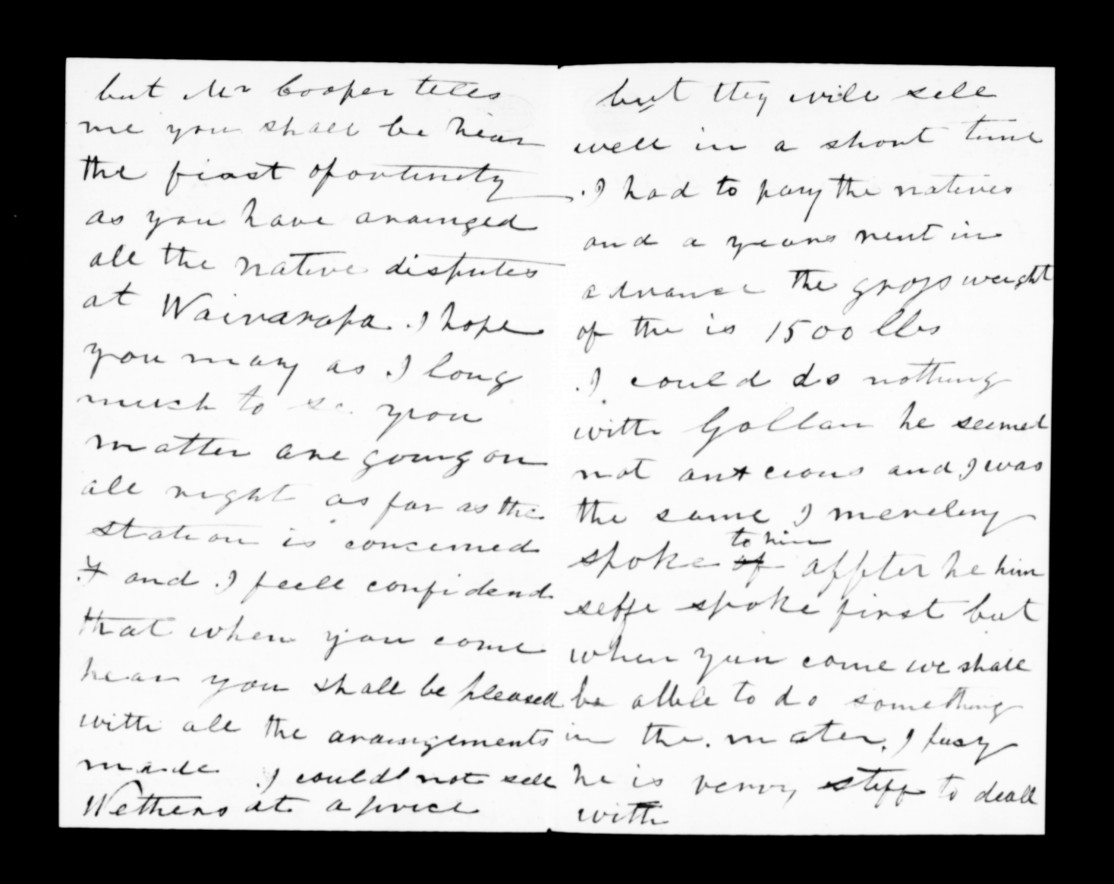 but Mr Cooper teles
me you shall be hear
the fiast ofortunity
as you have arainged
all the native disputes
at Wairarapa. I hope
you may as I long
much to se you
matter are going on
all right as far as the
station is concerned
and I feell confident
that when you come
hear you shall be pleased
with all the araingements
made I could not sell
Wethers at a price
but they will sell
well in a short time
. I had to pay the natives
and a years rent in
advance the gross weight
of the is 1500 lbs
. I could do nothing
with Gollan he seemed
not antcious and I was
the same I merely
to him
spoke of affter he him
selfe spoke first but
when you come we shall
be allble to do something
in the mater, I fasy
he is verry stiff to deall
with